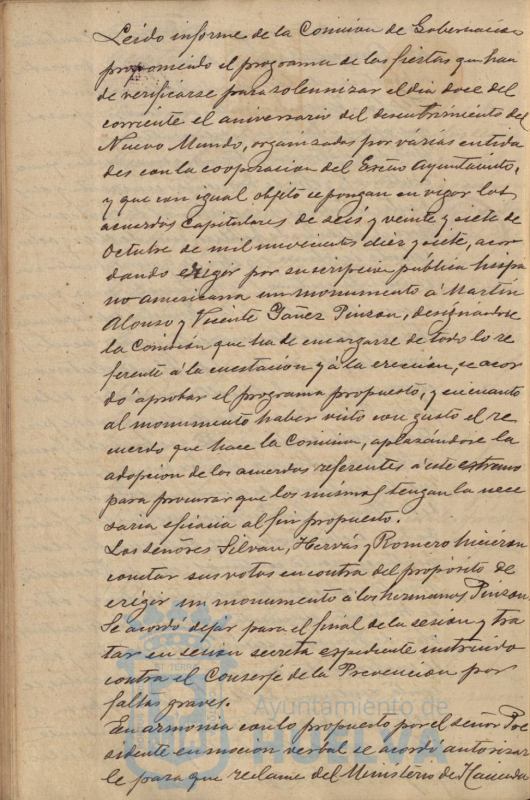 Leido informe de la Comision de Gobernacion
proponiendo el programa de las fiestas que han
de verificarse para solemnizar el dia doce del
corriente el aniversario del descubrimiento del
Nuevo Mundo, organizadas por várias entida
des con la cooperacion del Excmo Ayuntamto,
y que con igual objeto se pongan en vigor los
acuerdos capitulares de seis y veinte y siete de
Octubre de mil novecientos diez y siete, acor
dando erigir por suscripcion pública hispa
no americana un monumento á Martin
Alonso y Vicente Yañez Pinzon, designándose
la Comision que ha de encargarse de todo lo re
ferente á la cuestacion y á la ereccion, se acor
dó aprobar el programa propuesto, y en cuanto
al monumento haber visto con gusto el re
cuerdo que hace la Comision, aplazándose la
adopcion de los acuerdos referentes á este extremo
para procurar que los mismos tengan la nece
saria eficacia al fin propuesto.
Los señores Silvan, Hervás y Romero hicieron
constar sus votos en contra del propósito de
erigir un monumento á los hermanos Pinzon.
Se acordó dejar para el final de la sesión y tra
tar en sesion secreta expediente instruido
contra el Conserje de la Prevencion por
faltas graves.
En armonia con lo propuesto por el señor Pre
sidente en mocion verbal se acordó autorizar
le para que reclame del Ministerio de Hacienda
Ayuntamiento de
HUELVA